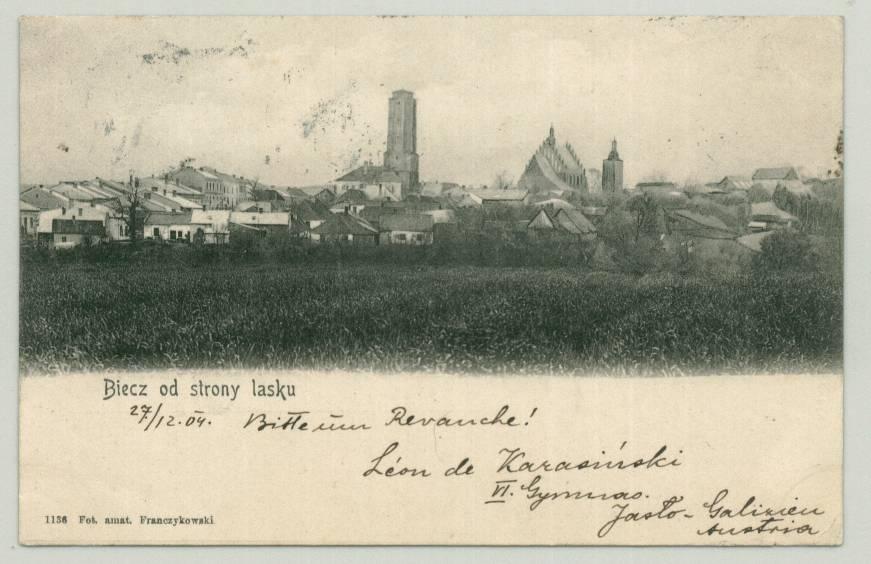 Biecz od strony lasku
27/12.04. Bitte um Revanche!
Léon de Karasiński
VI. Gymnas.
Jasło - Galizien
Austria
1136 Fot. amat. Franczykowski